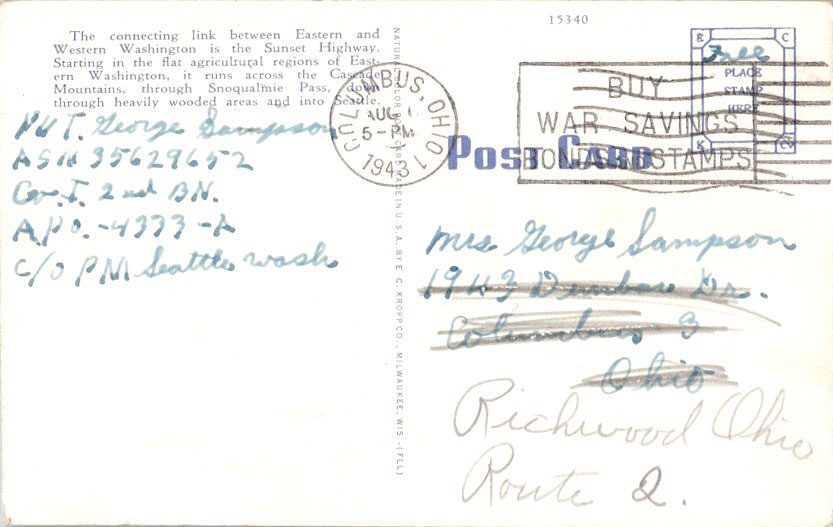 15340
The connecting link between Eastern and
Western Washington is the Sunset Highway.
Starting in the flat agricultural regions of East-
ern Washington, it runs across the Cascade
Mountains, through Snoqualmie Pass, down
through heavily wooded areas and into Seattle.
Pvt. George Sampson
ASN 35629652
Co. I. 2nd BN.
A.P.O. -4333-A
c/o PM Seattle wash
NATURAL COLOR POST CARD MADE IN U.S.A. BY E. C. KROPP CO., MILWAUKEE, WIS.-(FLL)
COLUMBUS, OHIO 1
AUG
5-PM
1943
BUY
WAR SAVINGS
BONDS AND STAMPS
E C
K Co
Free
PLACE
STAMP
HERE
POST CARD
Mrs George Sampson
1943 Dunbar Dr.
Columbus 3
Ohio
Richwood Ohio
Route 2.